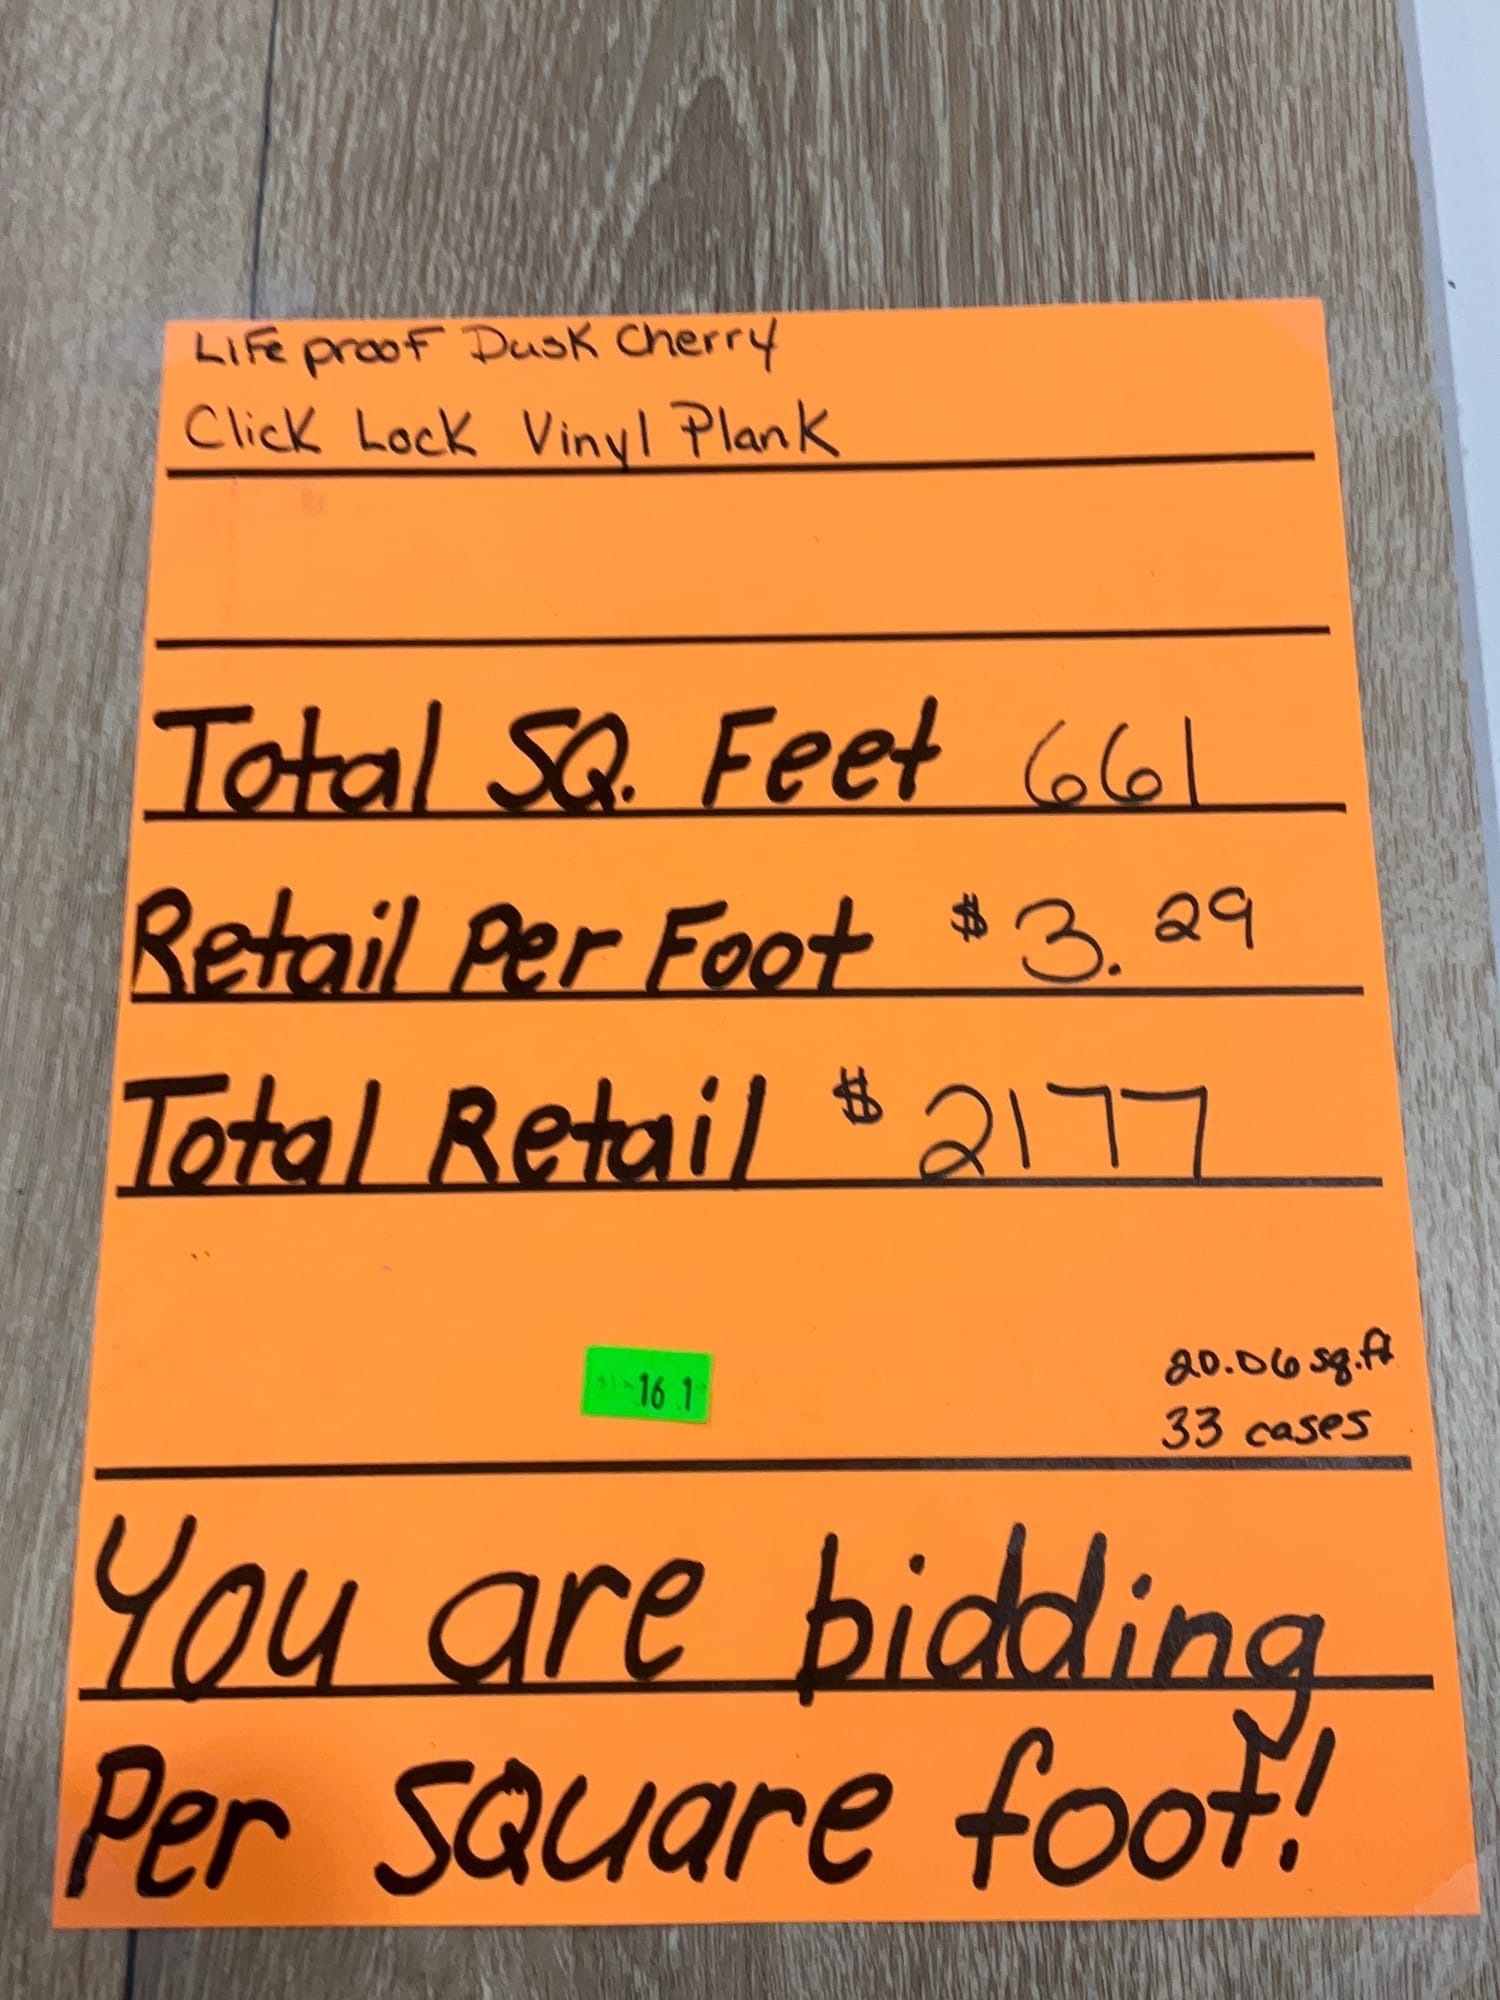 LiFeproof Dusk Cherry
Click Lock Vinyl Plank
Total SQ. Feet 661
Retail Per Foot $3.29
Total Retail $2177
20.06 sq.ft
16 1
33 cases
You are bidding
Per square foot!